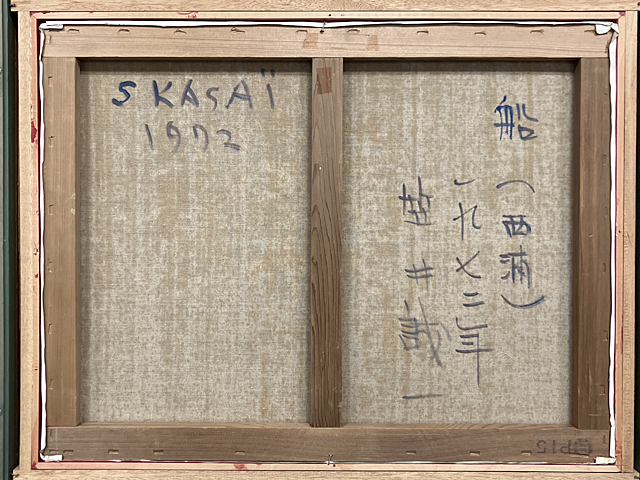 S KASAÏ
1972
船
(西浦)
一九七二年
笠井誠一
P15